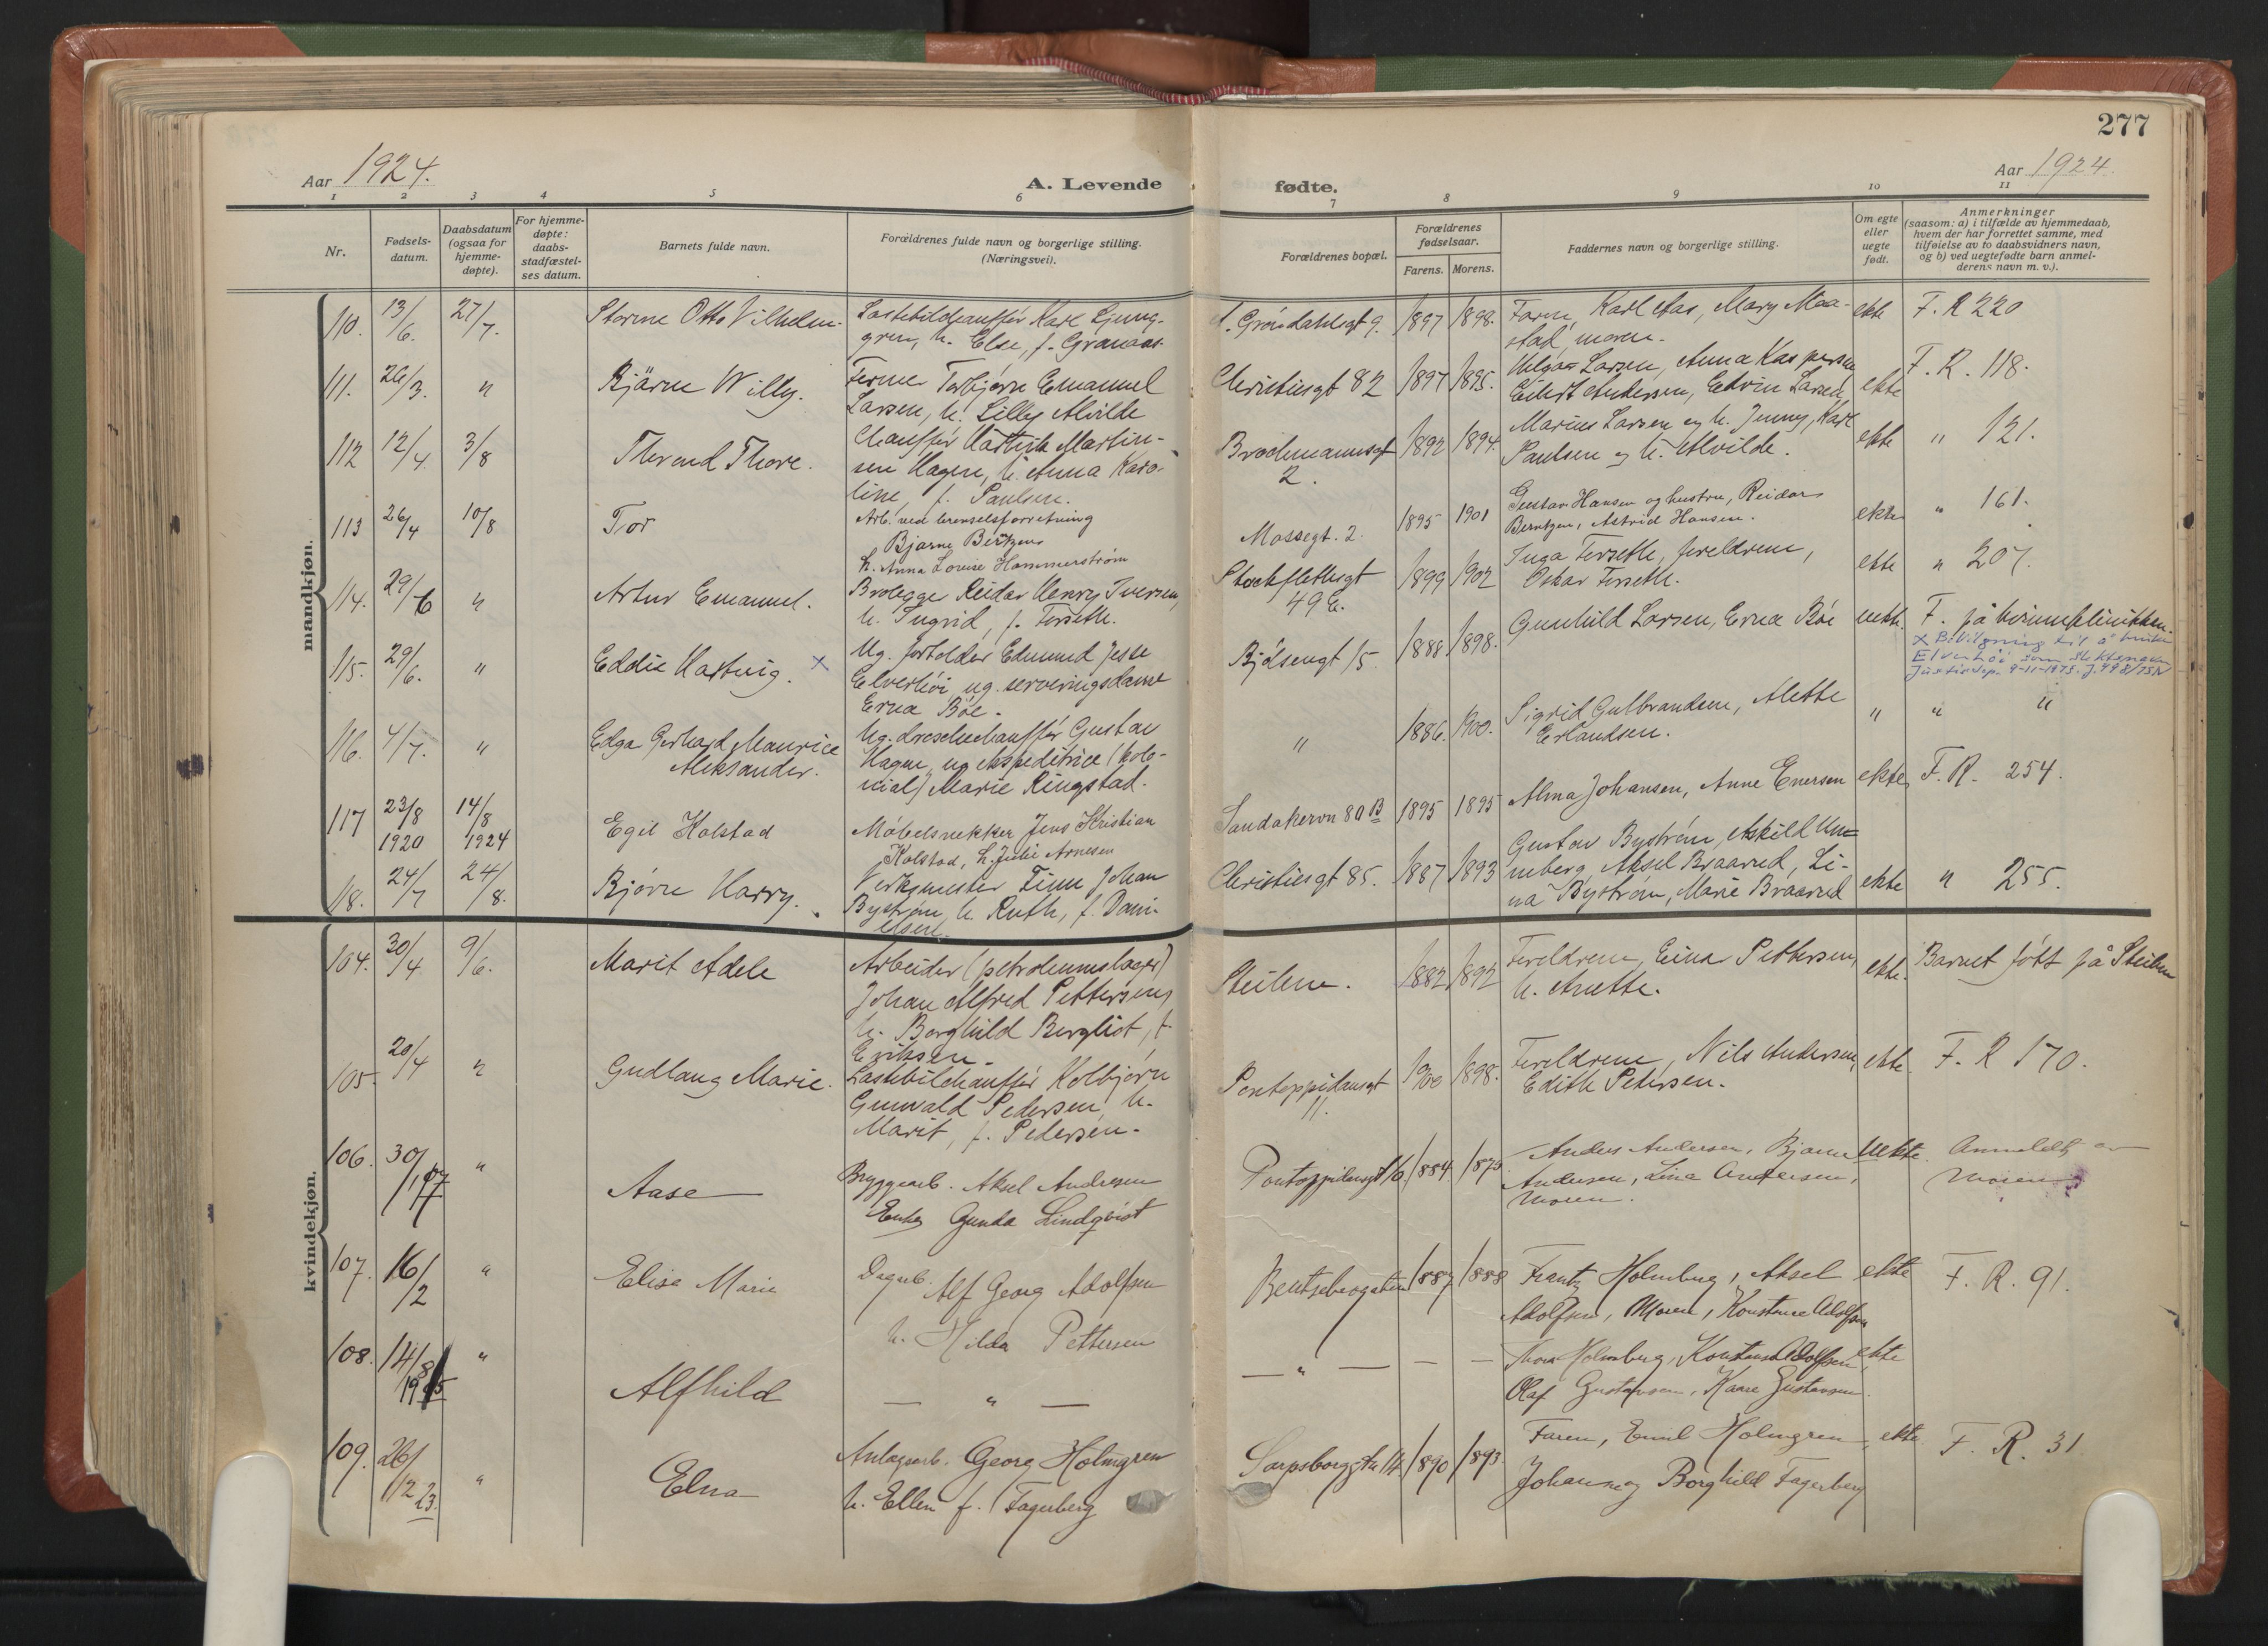 277
Aar 1924.
A. Levende
fødte.
Aar 1924.
1 2 3 4 5 6 7 8 9 10 11
Nr.
Fødsels-
datum.
Daabsdatum
(ogsaa for
hjemme-
døpte).
For hjemme-
døpte:
daabs-
stadfæstel-
ses datum.
Barnets fulde navn.
Forældrenes fulde navn og borgerlige stilling.
(Næringsvei).
Forældrenes bopæl.
Forældrenes
fødselsaar.
Farens. Morens.
Faddernes navn og borgerlige stilling.
Om egte
eller
uegte
født.
Anmerkninger
(saasom: a) i tilfælde av hjemmedaab,
hvem der har forrettet samme, med
tilføielse av to daabsvidners navn,
og b) ved uegtefødte barn anmel-
derens navn m. v.).
mandkjøn.
110. 13/6. 27/7. Storm Otto Vilhelm.
Lastebilchauffør Karl Ljung-
gren, h. Else, f. Granaas.
Grøndahlsgt 9. 1897 1898.
Faren, Karl Aas, Mary Maa-
stad, moren.
ekte F. R 220
111. 26/3. " Bjärne Willy.
Former Torbjørn Emanuel
Larsen, h. Lilly Alvilde
Christiesgt 82 1897 1895.
Helga Larsen, Anna Kaspersen
Eilert Andersen, Edvin Larsen
ekte F. R. 118.
112 12/4. 3/8 Thrond Thore.
Chauffør Martin-
sen Hagen, h. Anna Karo-
line, f. Paulsen.
Brochmannsgt
2. 1892 1894.
Marius Larsen og h. Jenny, Karl
Paulsen og h. Alvilde.
ekte " 121.
113 26/4 10/8 Tor
Arb. ved brenselsforretning
Bjarne
h. Anna Lovise Hammerstrøm
Mossegt. 2. 1895 1901
Gustav Hansen og hustru, Reidar
Berntzen, Astrid Hansen.
ekte " 161.
114. 29/6 " Artur Emanuel.
Brolegger Reidar Henry Iversen,
h. Ingrid, f. Terseth.
Stockflethsgt
49 E. 1899 1902
Inga Terseth, foreldrene,
Oskar Terseth.
ekte " 207.
115. 29/6. " Eddie Hartvig. x
Ug. forholder Edmund Jesse
Elverhöi, ug. serveringsdame
Erna Böe.
Bjølsengt 15. 1888 1898.
Gunhild Larsen, Erna Böe uekte. F. på kvinneklinikken.
x Bevilgning til å bruke
Elverhöi som slektsnavn
Justisdep. 4-11-1975. J. 498/75
116. 4/7. " Edga Gerhard Maurice
Aleksander.
Ug. droschechauffør Gustav
Hagen, ug. ekspeditrice (kolo-
nial) Marie Ringstad.
" 1886. 1900.
Sigrid Gulbrandsen, Alette
Erlandsen.
" " "
117 23/8 14/8
1920 1924
Egil Kolstad
Møbelsnekker Jens Kristian
Kolstad, h. Julie Arnesen
Sandakervn 80 B 1895 1895
Alma Johansen, Anne Enersen ekte F. R. 254.
118. 24/7 24/8. Bjørn Harry.
Verksmester Finn Johan
Byström, h. Ruth, f. Dani-
elsen.
Christiesgt 85. 1887 1893
Gustav Byström, Askild Un=
neberg, Aksel Braarud, Li-
na Byström, Marie Braarud
ekte " 255.
kvindekjøn.
104. 30/4 9/6. Marit Adele
Arbeider (petroleumslager)
Johan Alfred Pettersen,
h. Borghild Bergliot, f.
Eriksen.
Steilene. 1882 1892
Foreldrene, Einar Pettersen,
h. Anette.
ekte. Barnet føtt på Steilene
105. 20/4 " Gudlaug Marie.
Lastebilchauffør Kolbjørn
Gunvald Pedersen, h.
Marit, f. Pedersen.
Pontoppidansgt
11. 1900 1898.
Foreldrene, Nils Andersen,
Edith Petersen.
ekte. F. R 170.
106. 30/1 "
Aase
Bryggearb. Aksel Andresen
Enke Gunda Lindqvist
Pontoppidansgt 10. 1884. 1875.
Anders Andersen, Bjarne
Andersen, Lina Andersen,
Moren.
uekte. Anmeldt av
Moren
107. 16/2 " Elise Marie
Dagarb. Alf Georg Adolfsen
h. Hilda Pettersen
Bentsebrogaten 1887 1888
Frantz Holmberg, Aksel
Adolfsen, Moren, Konstance Adolfsen
ekte F. R. 91.
108. 14/8 "
1915
Alfhild
— " —
— " — — —
Thora Holmberg, Konstanse Adolfsen
Olaf Gustavsen, Kaare Gustavsen.
ekte
109. 26/12 23. "
Elna
Anlagsarb. Georg Holmgren
h. Ellen f. Fagerberg
Sarpsborggtn 14 1890 1893.
Faren, Emil Holmgren,
Johanne og Borghild Fagerberg
ekte F. R. 31.